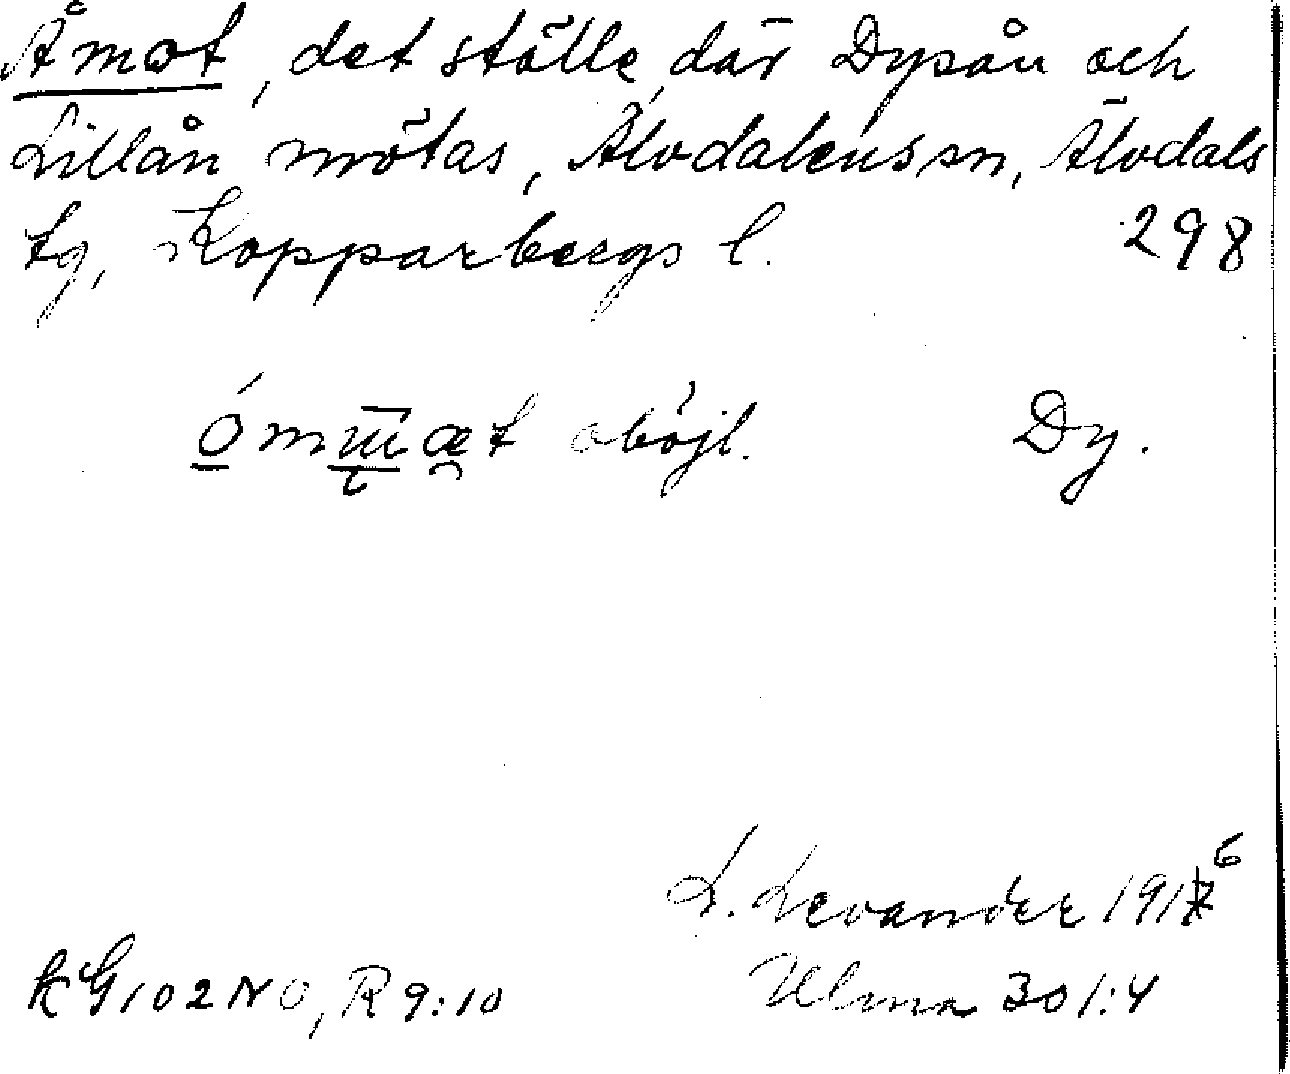 Åmot, det ställe, där Dysån och
Lillån mötas, Älvdalens sn, Älvdals
tg, Kopparbergs l. 298
oböjl. Dy.
L. Levander 1916
KG102 NO, R 9:10 Ulma 301:4